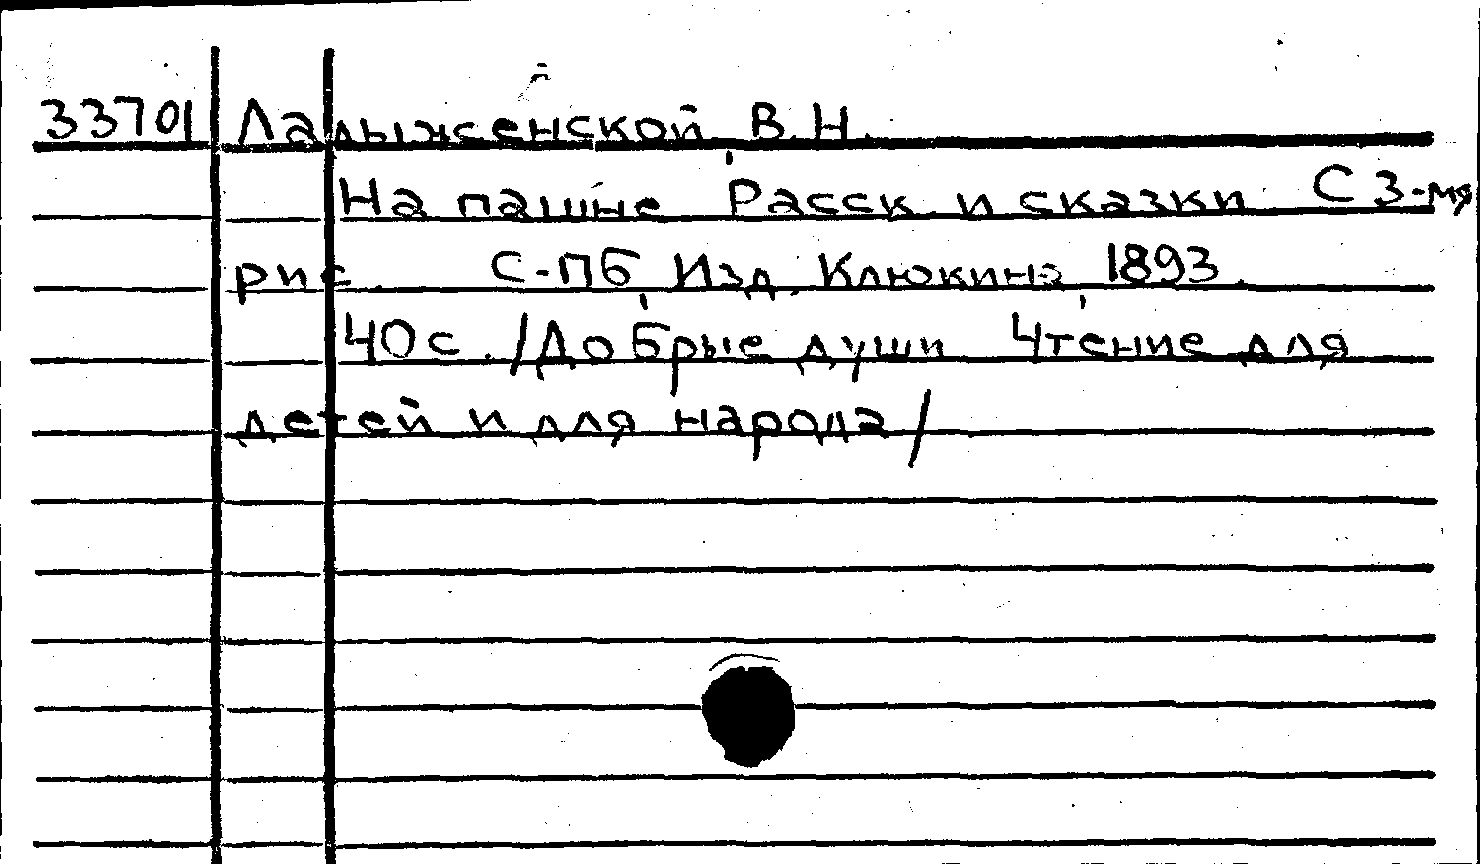 33701 Ладыженской, В.Н.
На пашне. Расск. и сказки. С 3-мя
рис. С-ПБ, Изд. Клюкина, 1893.
40 с. /Добрые души. Чтение для
детей и для народа/